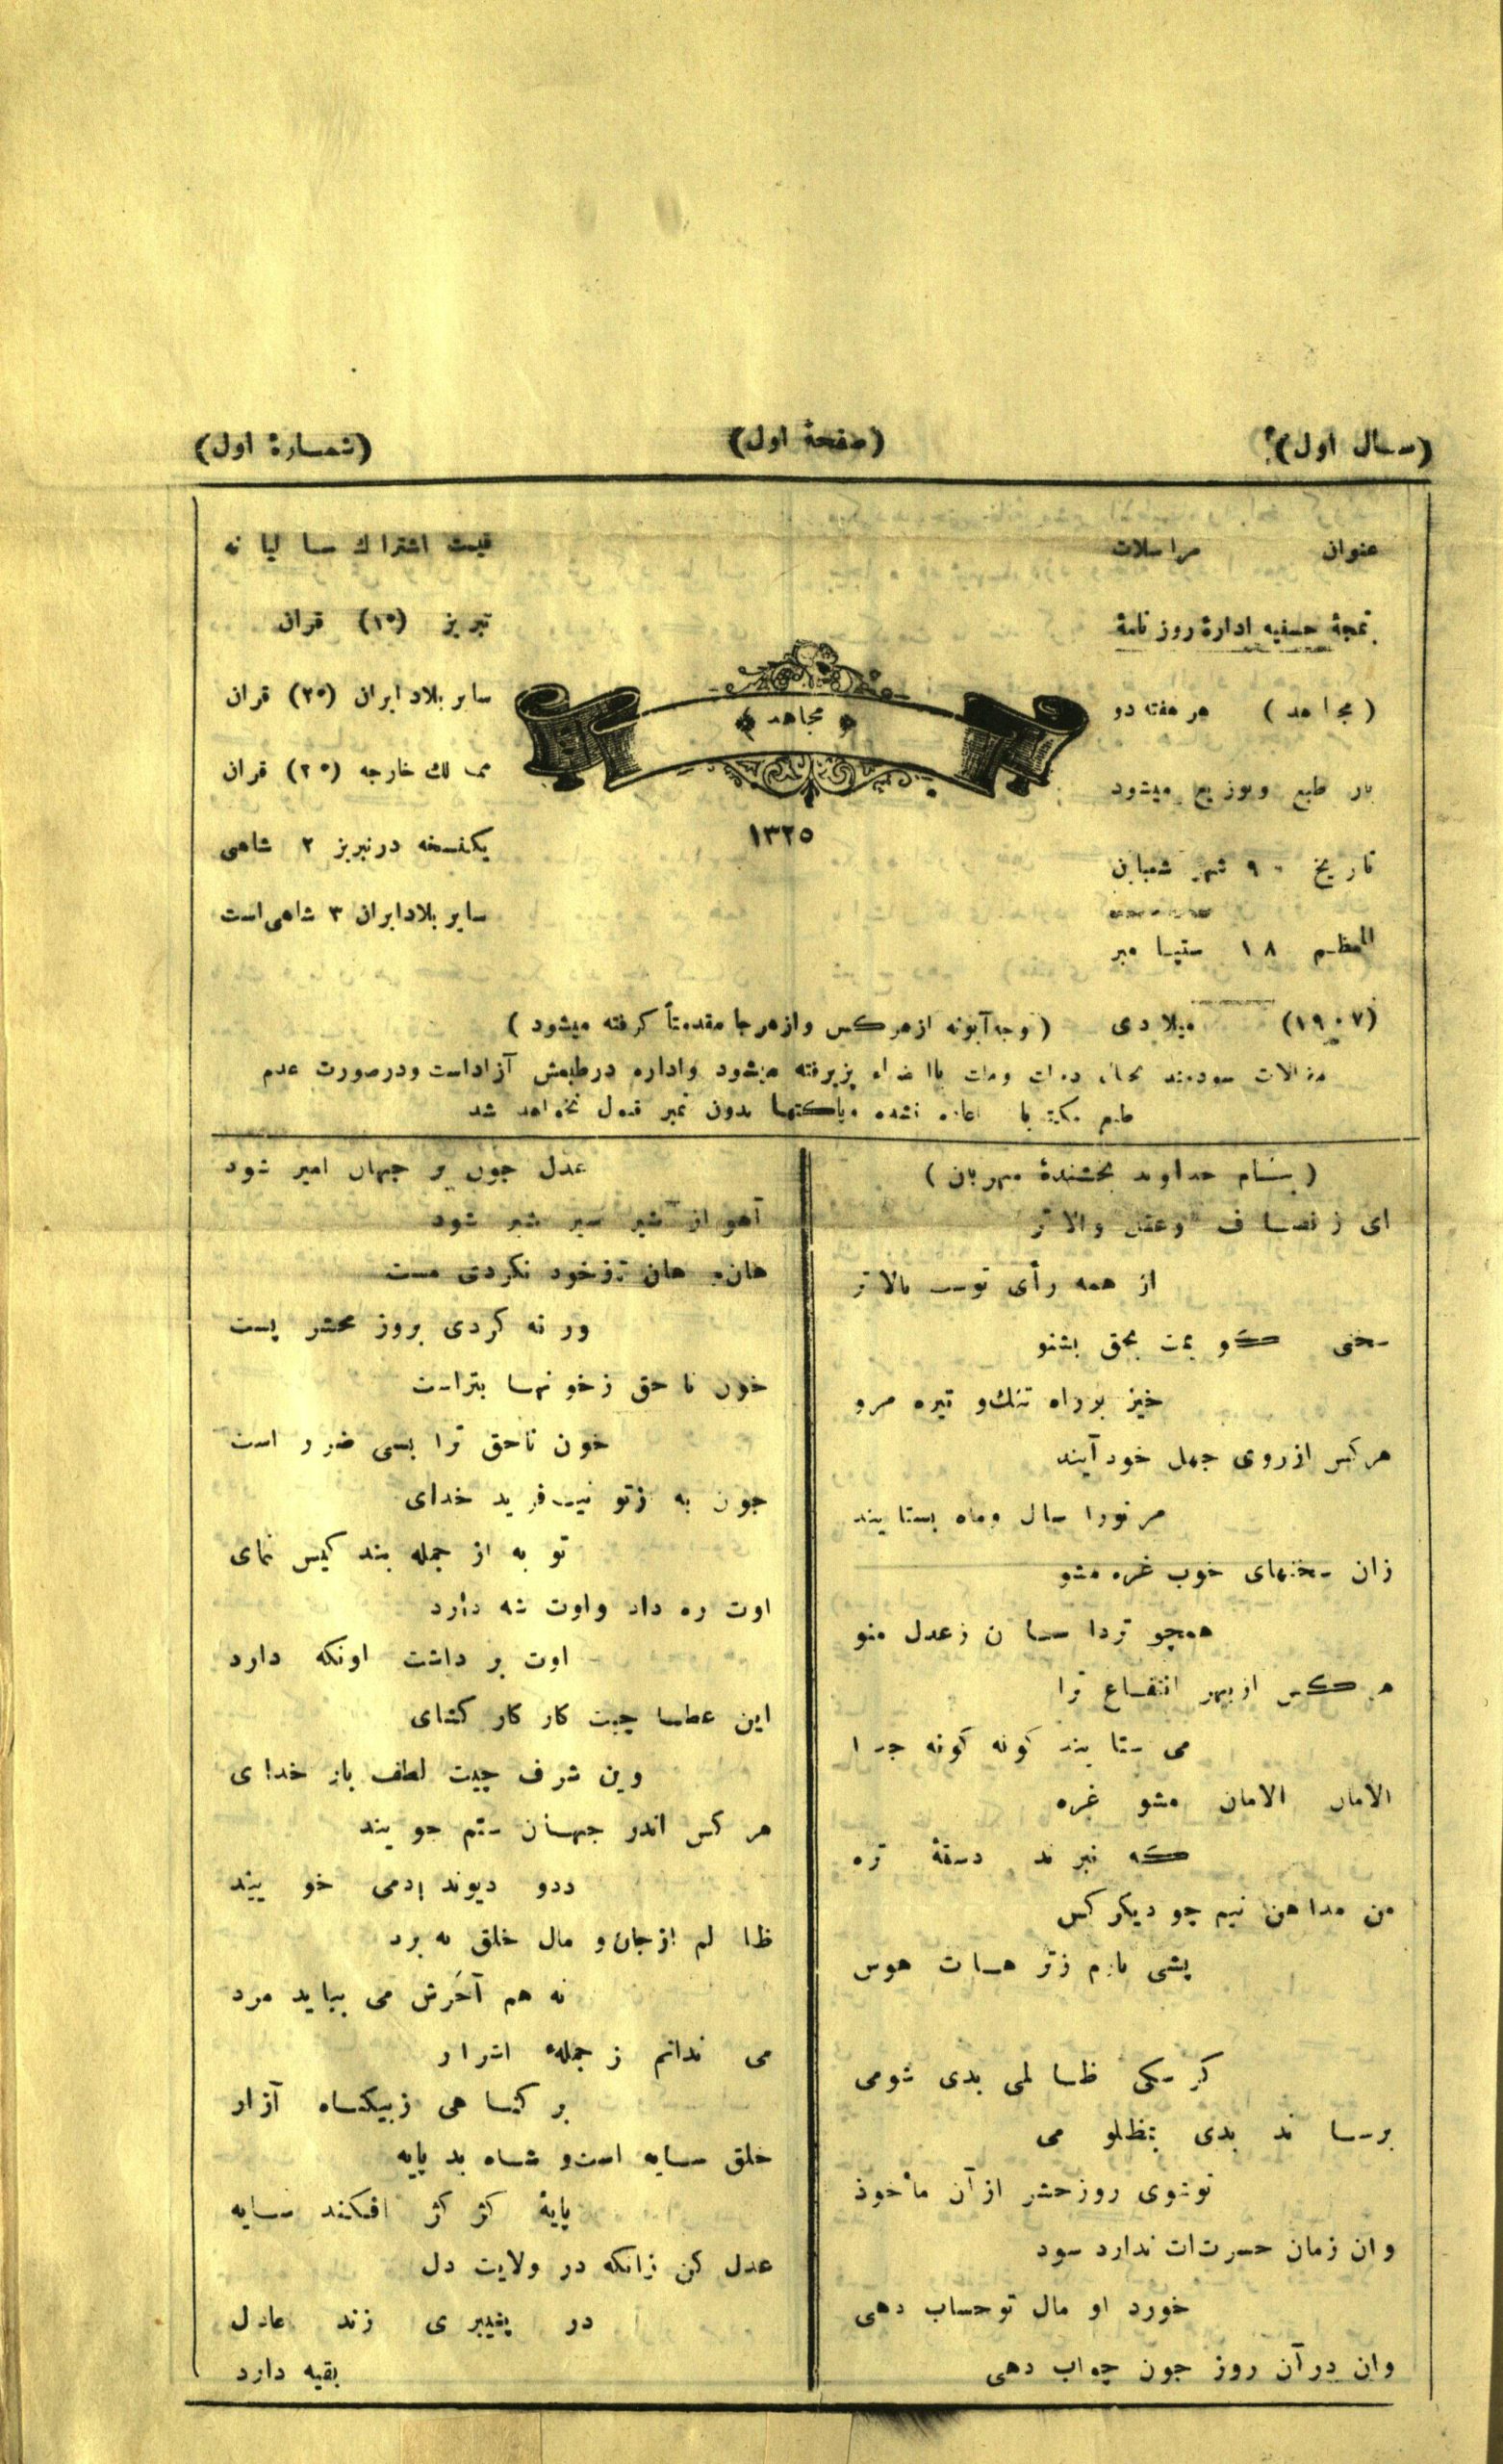 (سال اول)
(صفحهٔ اول)
(شمارهٔ اول)
عنوان مراسلات
نمجهٔ حسفیه ادارهٔ روزنامهٔ
(مجاهد) هر هفته دو
بار طبع وتوزیع میشود
تاریخ ۹ شهر شعبان
المعظم ۱۸ سپتیامبر
(۱۹۰۷) میلادی
﴿ مجاهد ﴾
۱۳۲۵
قیمت اشتراك سالیانه
تبریز (۱۵) قران
سایر بلاد ایران (۲۵) قران
ممالك خارجه (۲۵) قران
یکنسخه درتبریز ۲ شاهی
سایر بلاد ایران ۳ شاهی است
(وجه آبونه ازهرکس وازهرجا مقدمتاً کرفته میشود)
مقالات سودمند بحال دولت وملت باامضاء پزیرفته میشود واداره درطبعش آزاداست ودرصورت عدم
طبع مکتوبا اعاده نشده وپاکتها بدون تمبر قبول نخواهد شد
(بنام خداوند بخشندهٔ مهربان)
ای ز انصاف وعقل والاتر
از همه رأی توست بالاتر
سخنی گویمت بحق بشنو
خیز بر راه تنك و تیره مرو
هرکس ازروی جهل خود آیند
مر تورا سال وماه بستایند
زان سخنهای خوب غره مشو
همچو تردامنان ز عدل منو
هرکس ازبهر انتفاع ترا
می ستایند کونه کونه جدا
الامان الامان مشو غره
که نبرند دستهٔ تره
من مداهن نیم چو دیکر کس
پشی نارم زتر هات هوس
کر سکی ظالمی بدی شومی
برساند بدی بمظلومی
توشوی روزحشر ازآن مأخوذ
وان زمان حسرت‌ات ندارد سود
خورد او مال تو حساب دهی
وان درآن روز چون جواب دهی
عدل چون بر جهان امیر شود
آهو از شیر سیر شیر شود
هان و هان تزخود نکردی مست
ور نه کردی بروز محشر پست
خون ناحق زخونها بتراست
خون ناحق ترا بسی ضرر است
چون به زتو نیافرید خدای
تو به از جمله بند کیس نمای
اوت ره داد واوت شه دارد
اوت بر داشت اونکه دارد
این عطا چیست کار کار کشای
وین شرف چیت لطف بار خدای
هر کس اندر جهان ستم جویند
ددو دیوند آدمی خویند
ظالم ازجان و مال خلق نه برد
نه هم آخرش می بباید مرد
می ندانم ز جملهٔ اشرار
بر کناهی زبیکناه آزار
خلق سایه است و شاه بد پایه
پایهٔ کژ کژ افکند سایه
عدل کن زانکه در ولایت دل
در پیغمبری زند عادل
بقیه دارد